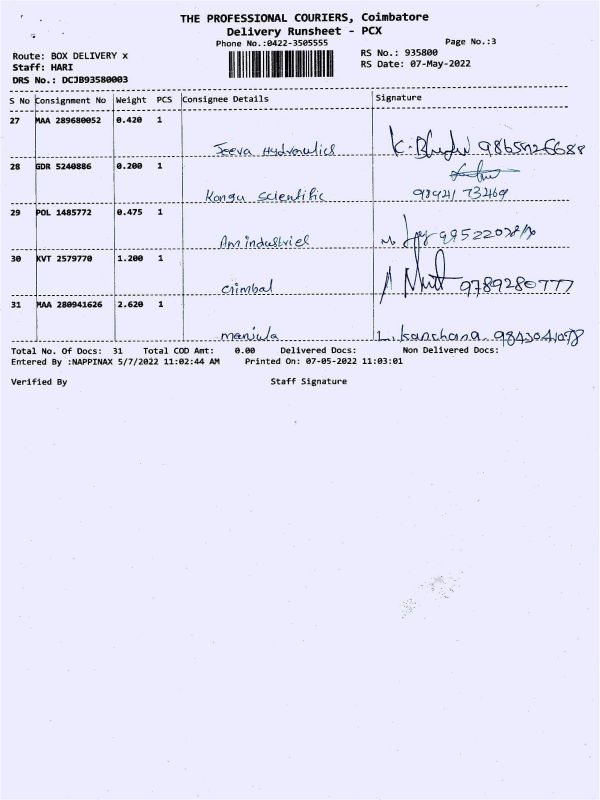 THE PROFESSIONAL COURIERS, Coimbatore
Delivery Runsheet - PCX
Phone No.:0422-3505555
Page No.:3
Route: BOX DELIVERY x
RS No.: 935800
Staff: HARI
RS Date: 07-May-2022
DRS No.: DCJB93580003
S No Consignment No Weight PCS Consignee Details Signature
27 MAA 289680052 0.420 1
Jeeva Hydraulics K.
28 GDR 5240886 0.200 1
Kongu Scientific
29 POL 1485772 0.475 1
Am industriel
30 KVT 2579770 1.200 1
9789280777
31 MAA 280941626 2.620 1
manjula L. kanchana 9843041098
Total No. Of Docs: 31 Total COD Amt: 0.00 Delivered Docs: Non Delivered Docs:
Entered By :NAPPINAX 5/7/2022 11:02:44 AM Printed On: 07-05-2022 11:03:01
Verified By Staff Signature